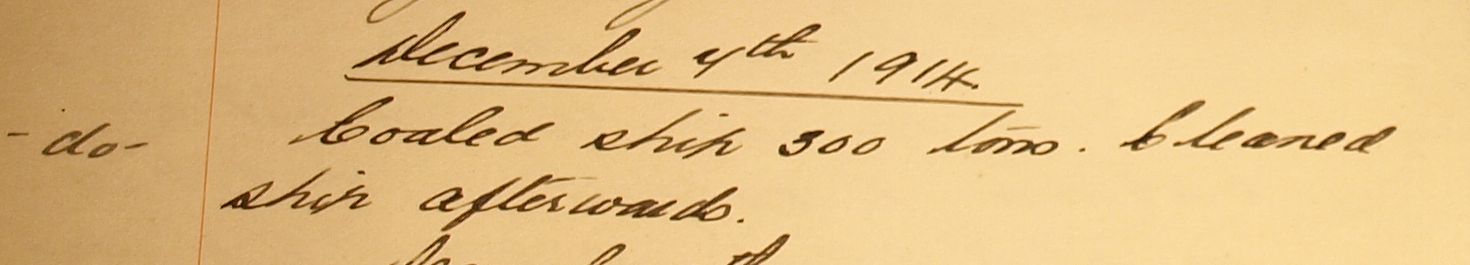 December 4th 1914.
- do - Coaled ship 300 tons. Cleaned
ship afterwards.